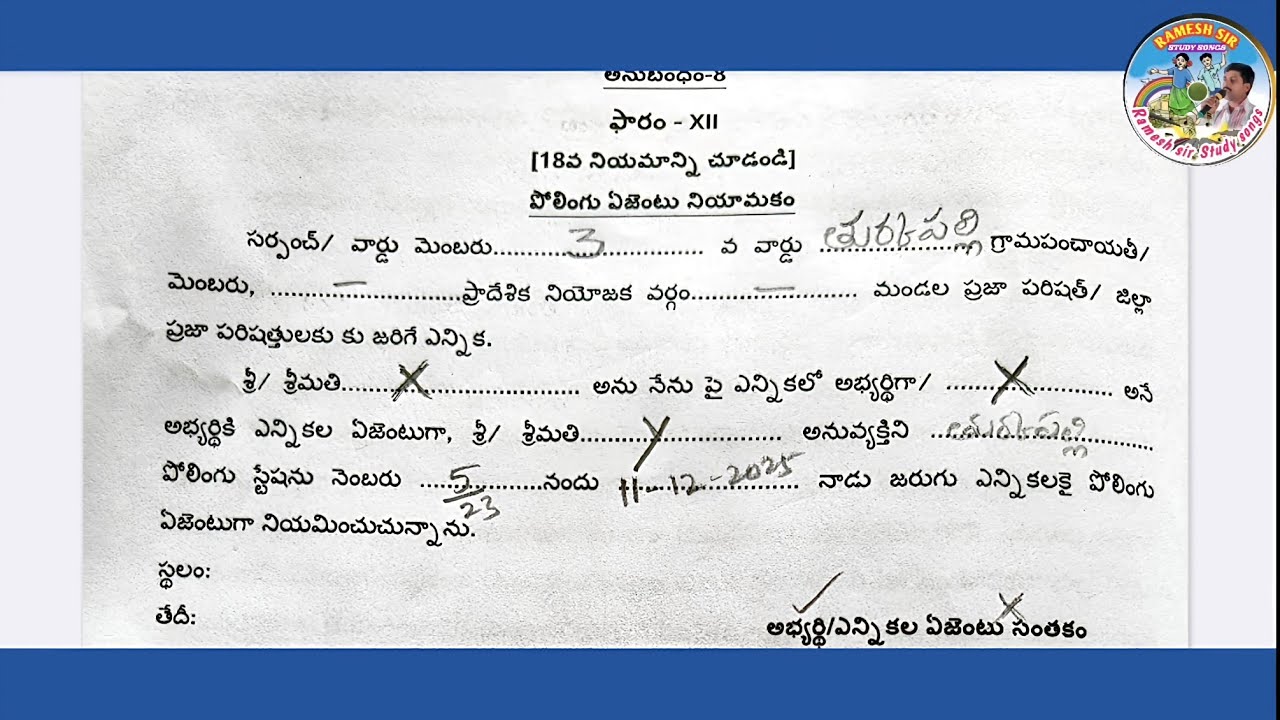 RAMESH SIR
STUDY SONGS
Ramesh sir Study songs
అనుబంధం-8
ఫారం - XII
[18వ నియమాన్ని చూడండి]
పోలింగు ఏజెంటు నియామకం
సర్పంచ్/ వార్డు మెంబరు.......3....... వ వార్డు తుర్కపల్లి గ్రామపంచాయతీ/
మెంబరు, .......—.......ప్రాదేశిక నియోజక వర్గం.......—....... మండల ప్రజా పరిషత్/ జిల్లా
ప్రజా పరిషత్తులకు కు జరిగే ఎన్నిక.
శ్రీ/ శ్రీమతి.......X....... అను నేను పై ఎన్నికలో అభ్యర్థిగా/ .......X....... అనే
అభ్యర్థికి ఎన్నికల ఏజెంటుగా, శ్రీ/ శ్రీమతి.......Y....... అనువ్యక్తిని తుర్కపల్లి
పోలింగు స్టేషను నెంబరు .......5/23.......నందు 11-12-2025 నాడు జరుగు ఎన్నికలకై పోలింగు
ఏజెంటుగా నియమించుచున్నాను.
స్థలం:
తేదీ:
అభ్యర్థి/ఎన్నికల ఏజెంటు సంతకం